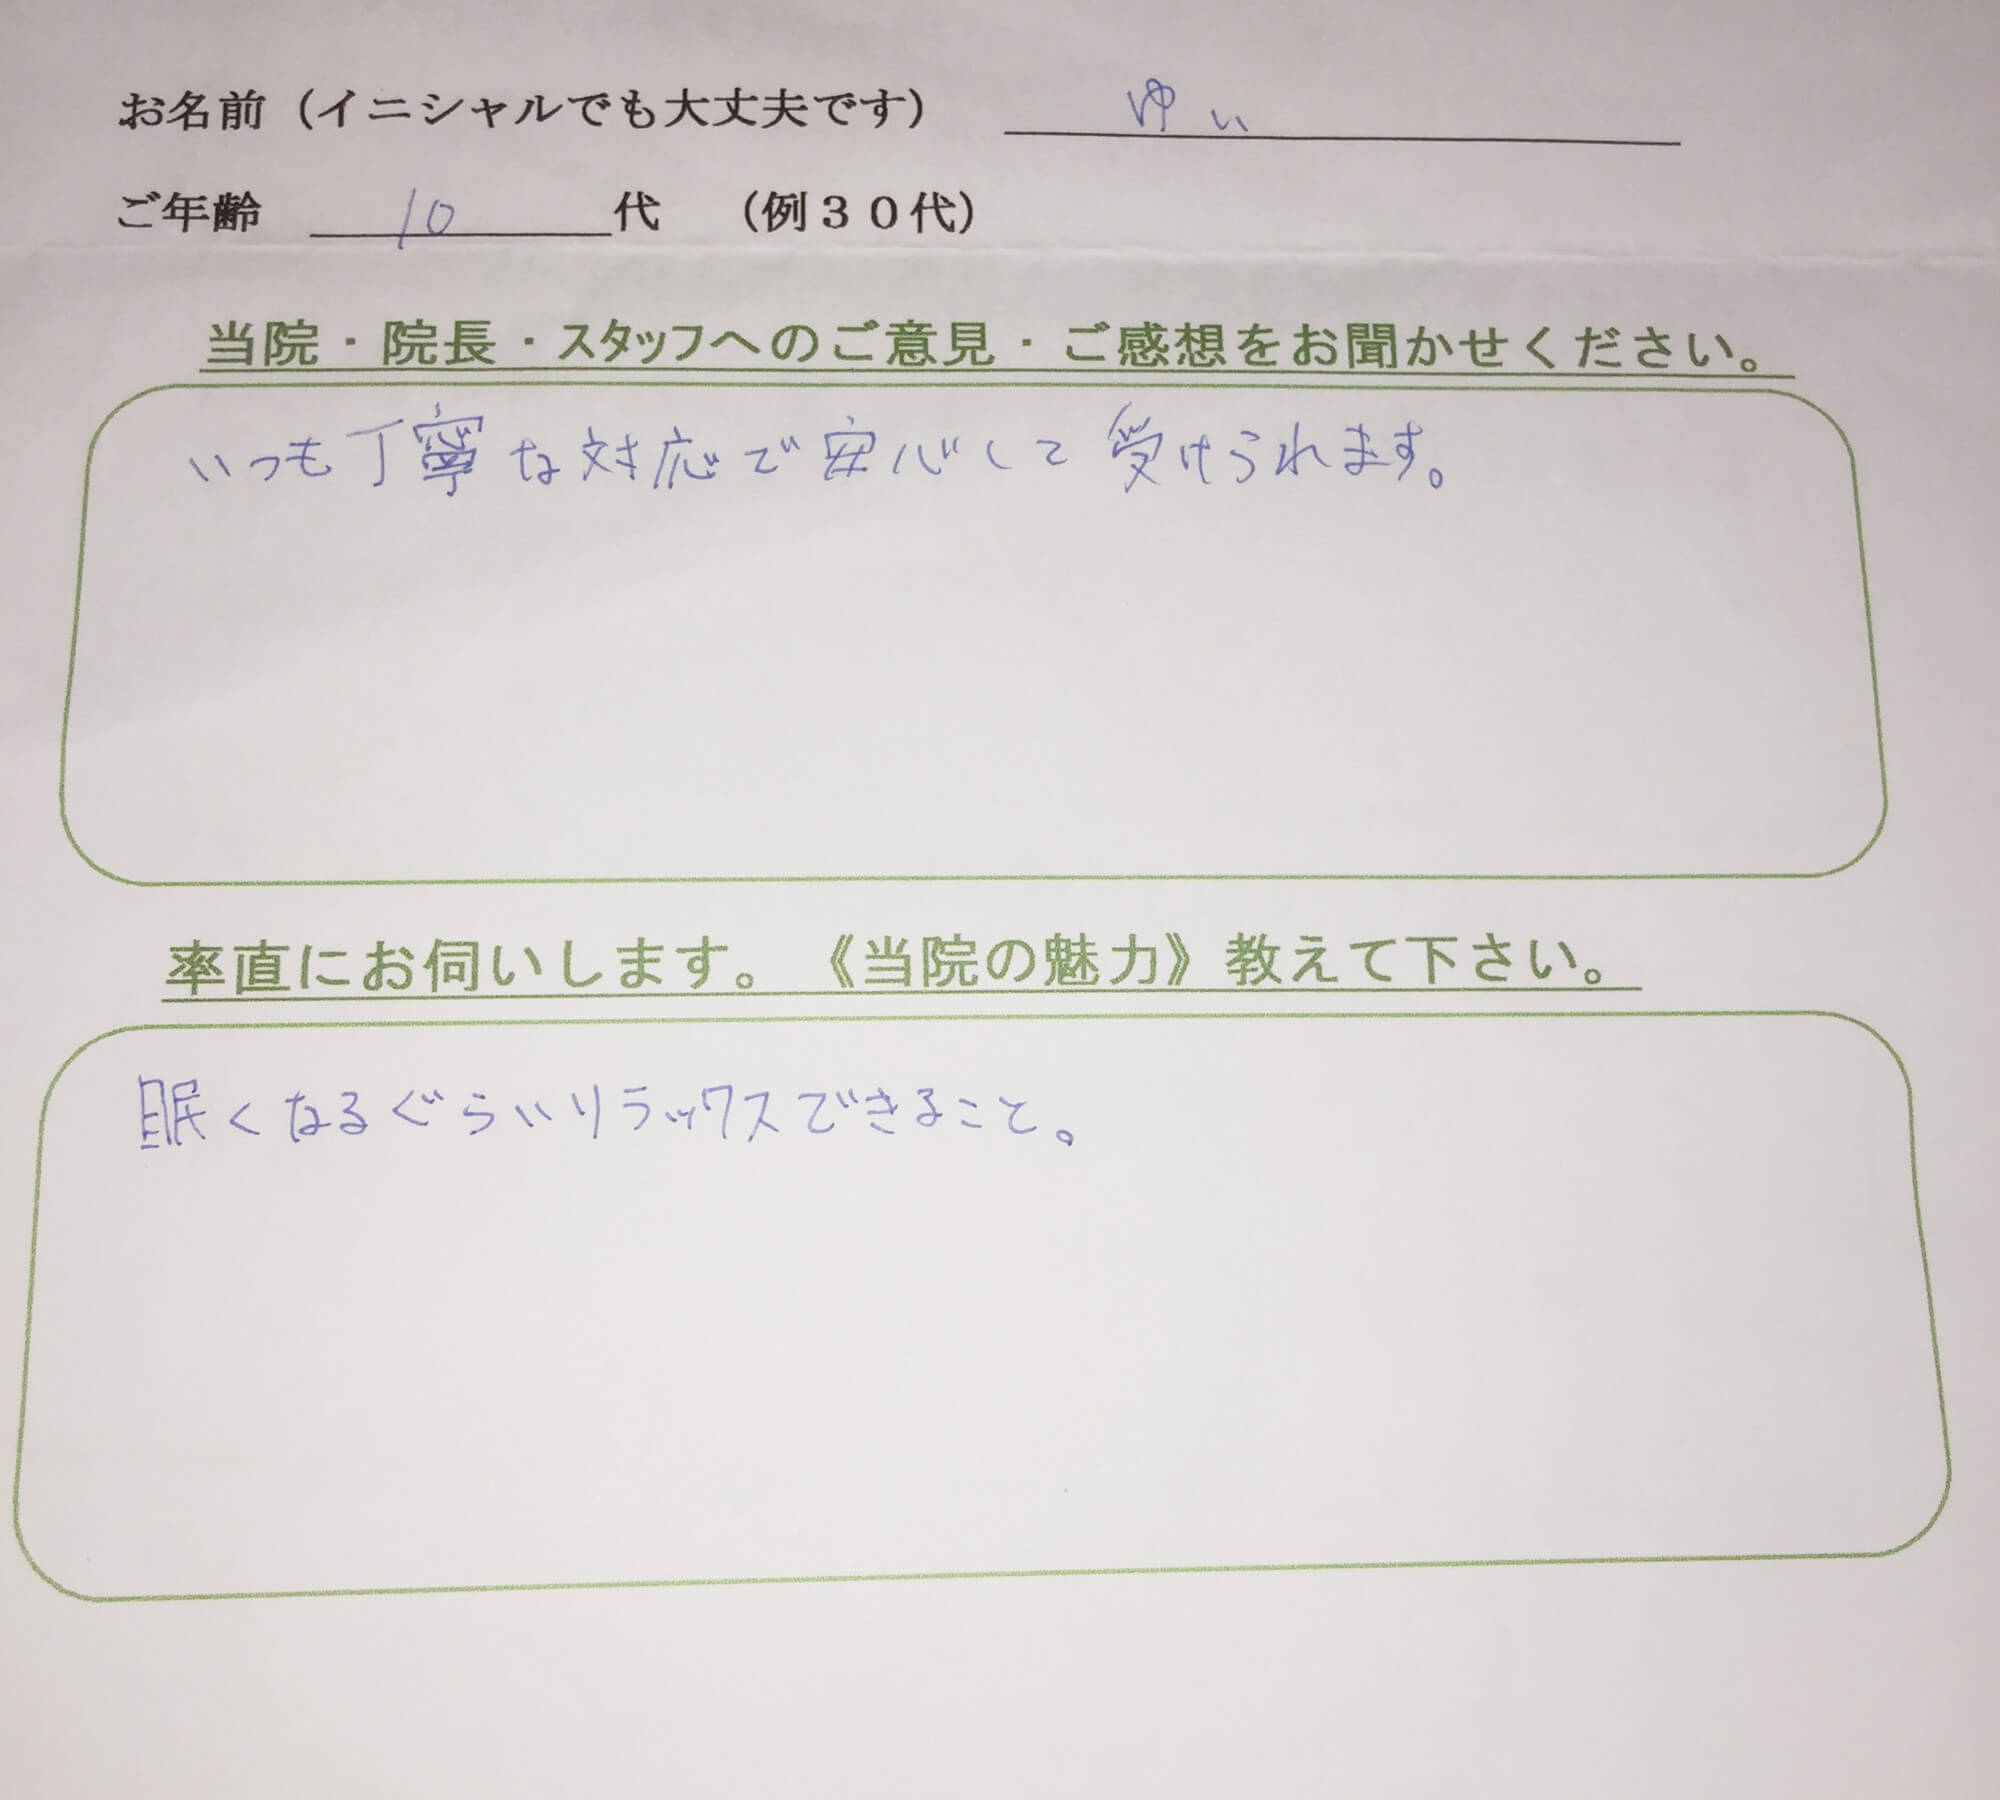 お名前（イニシャルでも大丈夫です） ゆい
ご年齢 10 代 （例３０代）
当院・院長・スタッフへのご意見・ご感想をお聞かせください。
いつも丁寧な対応で安心して受けられます。
率直にお伺いします。《当院の魅力》教えて下さい。
眠くなるぐらいリラックスできること。